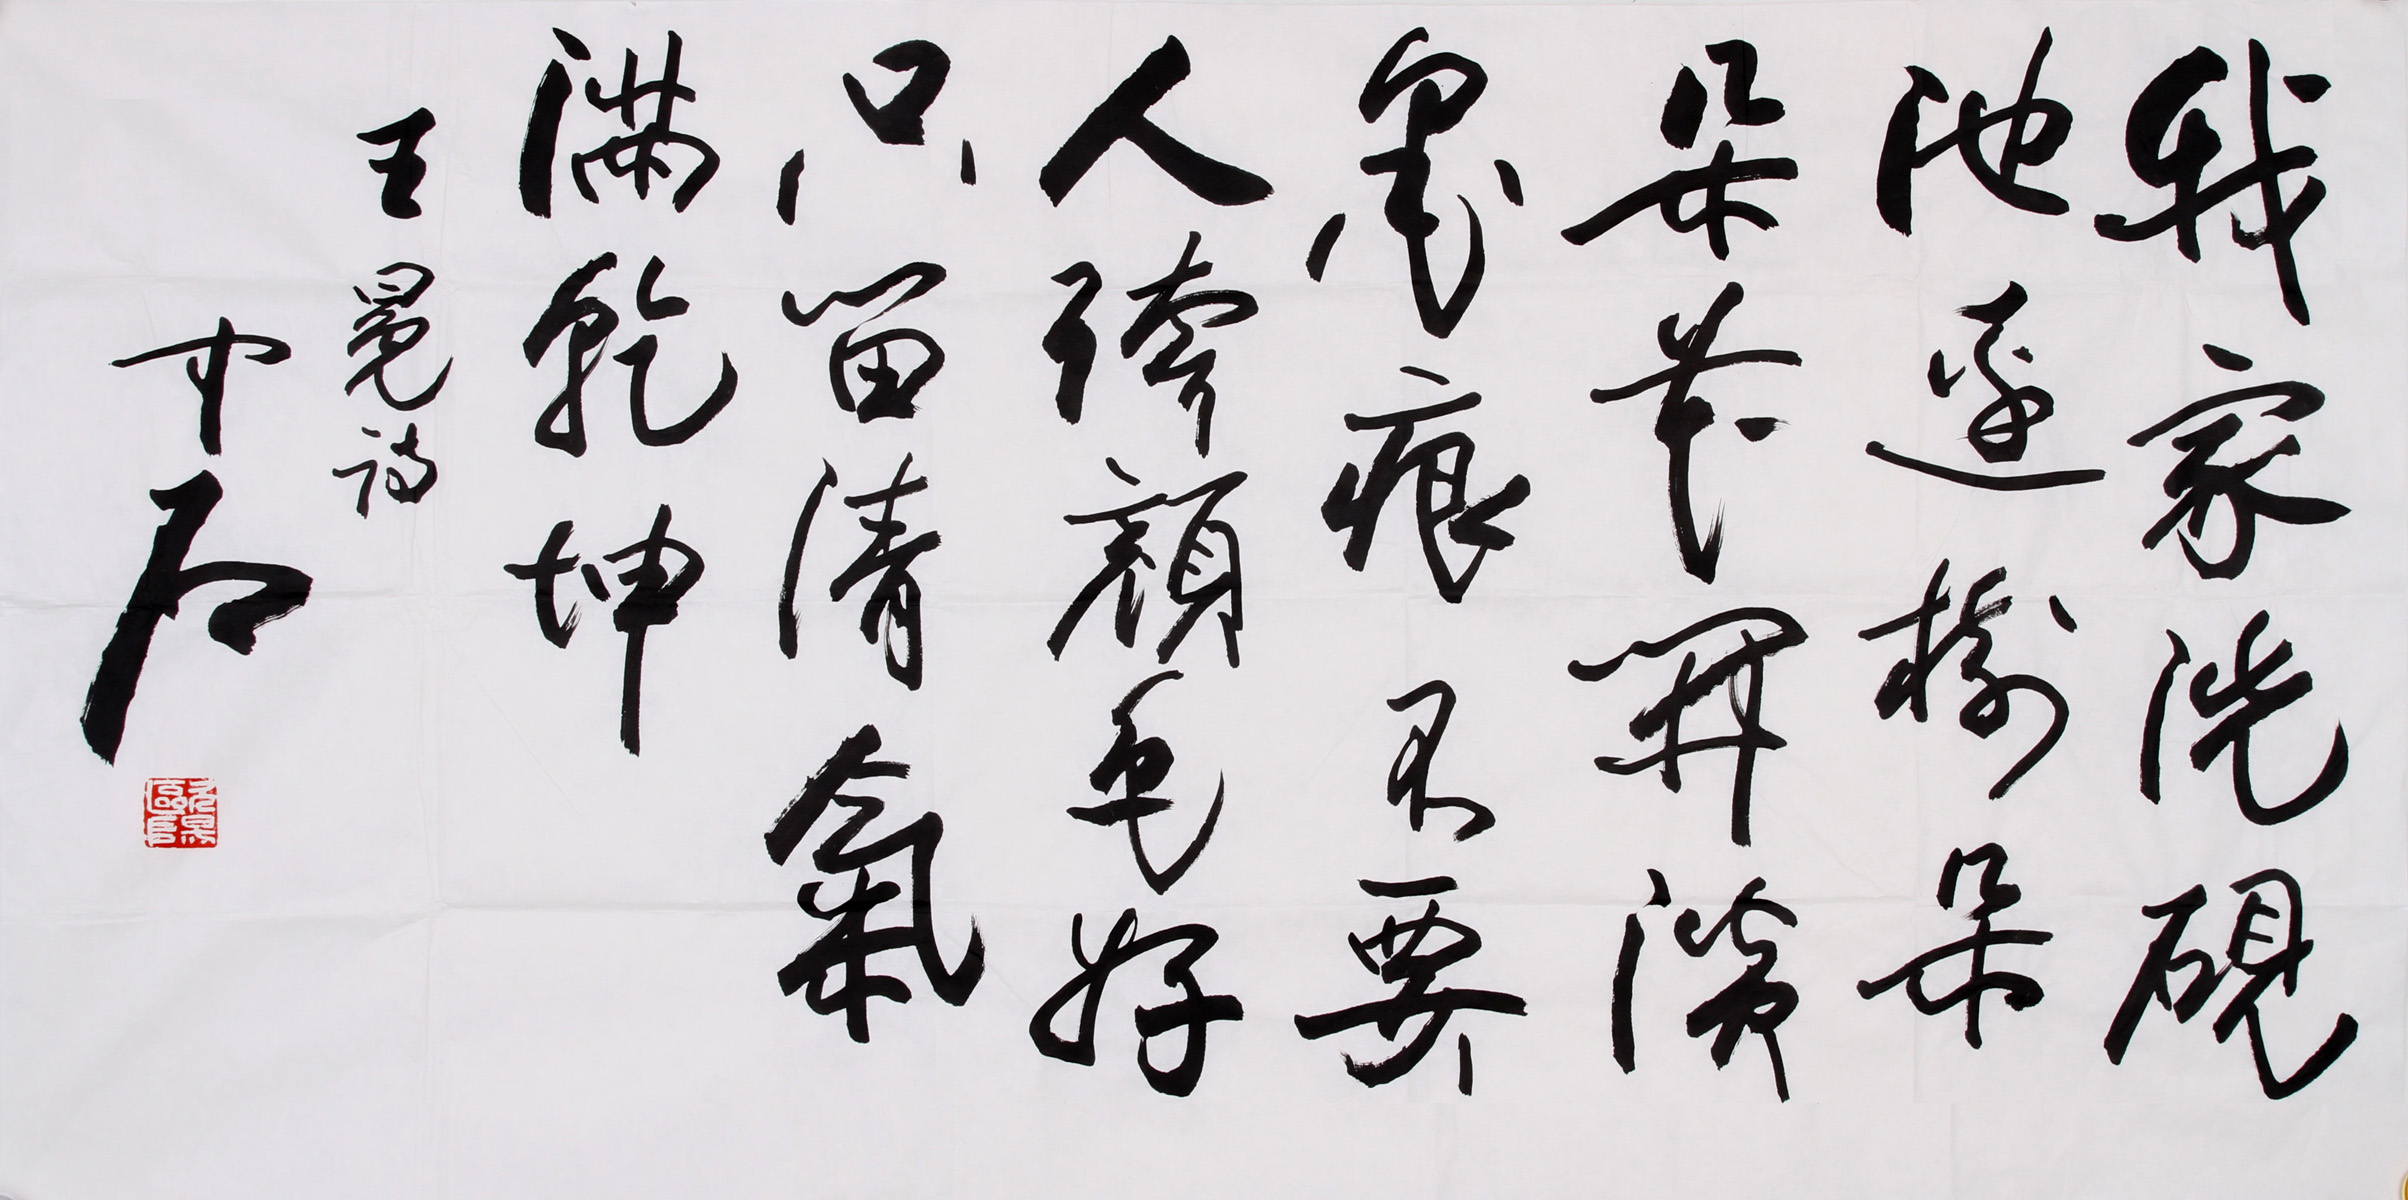 我家洗硯
池邊樹朵
朵花開淡
墨痕不要
人誇顏色好
只留清氣
滿乾坤
王冕詩
中石